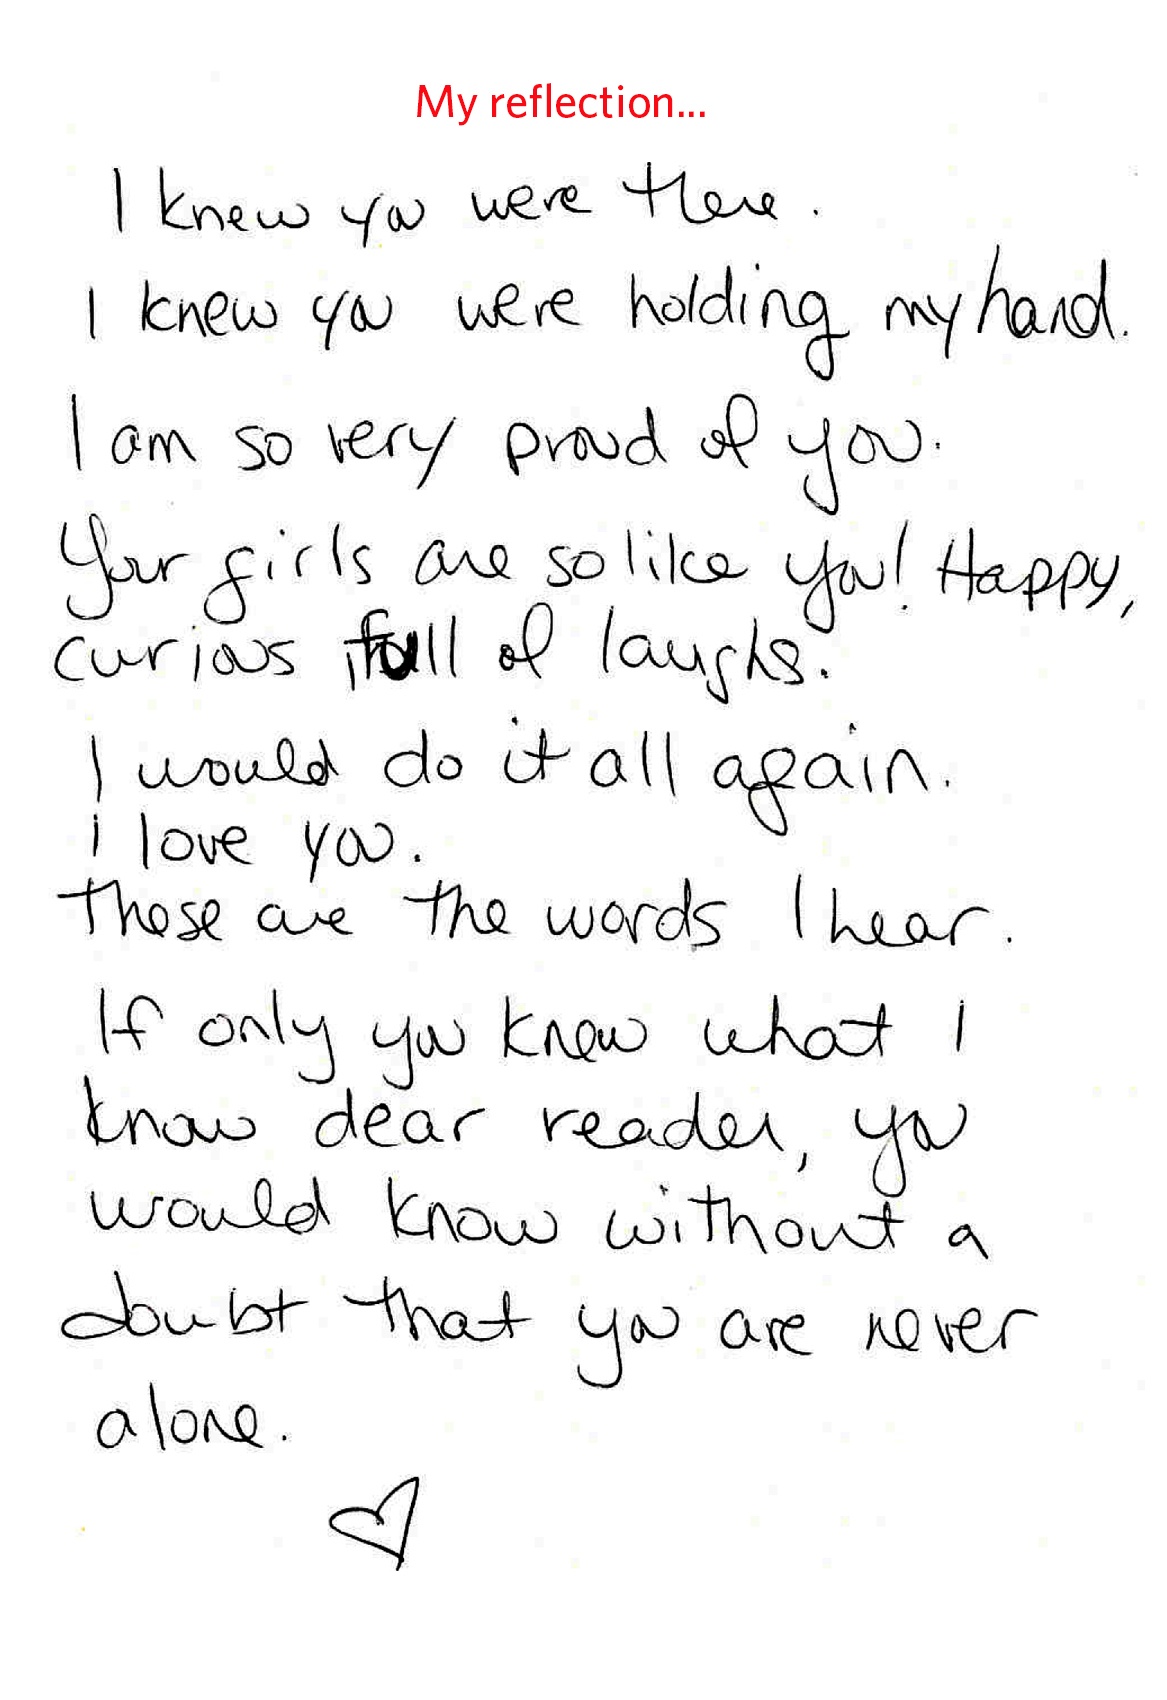 My reflection...
I knew you were there.
I knew you were holding my hand.
I am so very proud of you.
Your girls are so like you! Happy,
curious, full of laughs.
I would do it all again.
i love you.
These are the words I hear.
If only you knew what I
know dear reader, you
would know without a
doubt that you are never
alone.